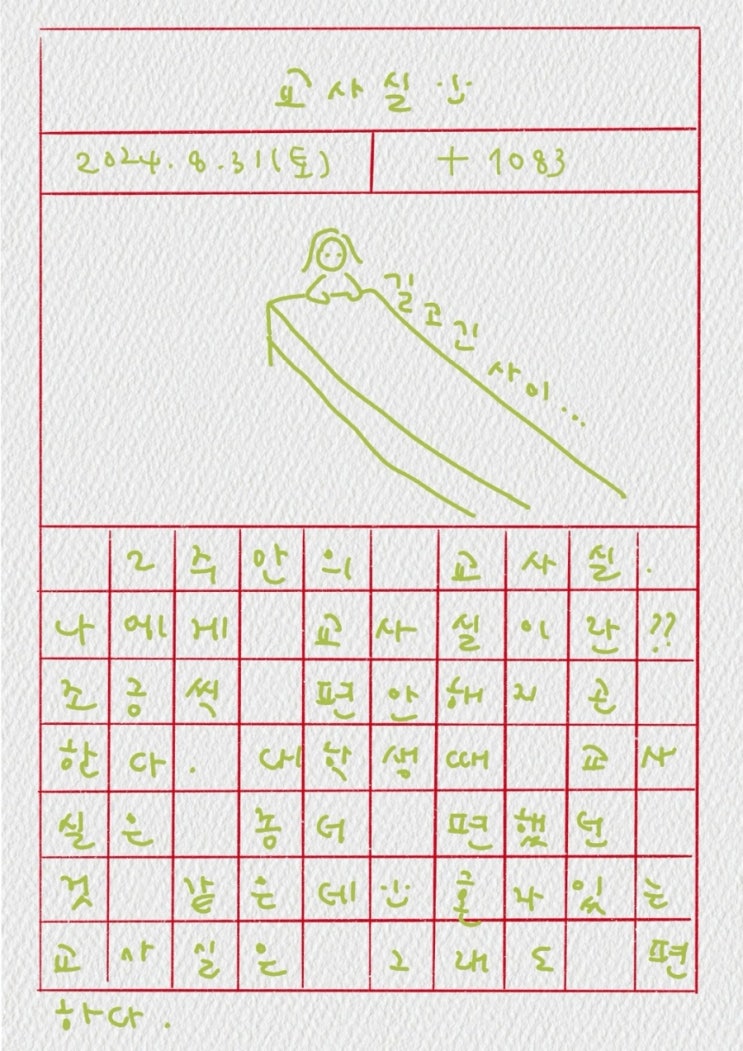 교사실 ㅎ
2024.8.31(토)
+1083
길고 긴 사이...
2주안의 교사실.
나에게 교사실이란??
조금씩 편안해지곤
한다. 대학생때 교사
실은 좀 더 편했던
것 같은데ㅎ 혼자 있는
교사실은 그래도 편
하다.